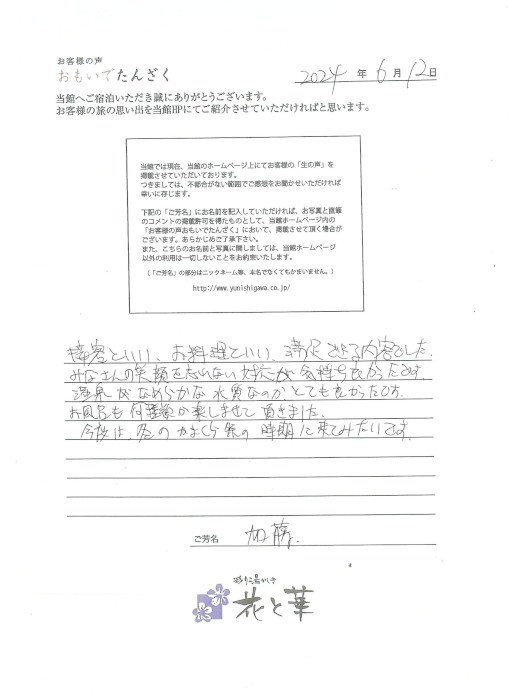 お客様の声
おもいでたんざく
2024年6月12日
当館へご宿泊いただき誠にありがとうございます。
お客様の旅の思い出を当館HPにてご紹介させていただければと思います。
当館では現在、当館のホームページ上にてお客様の「生の声」を
掲載させていただいております。
つきましては、不都合がない範囲でご感想をお聞かせいただければ
幸いに存じます。
下記の「ご芳名」にお名前を記入していただければ、お写真と直筆
のコメントの掲載許可を得たものとして、当館ホームページ内の
「お客様の声おもいでたんざく」において、掲載させて頂く場合が
ございます。あらかじめご了承下さい。
また、こちらのお名前と写真に関しましては、当館ホームページ
以外の利用は一切しないことをお約束いたします。
(「ご芳名」の部分はニックネーム等、本名でなくてもかまいません。)
http://www.yunishigawa.co.jp/
接客といい、お料理といい、満足できる内容でした。
みなさんの笑顔を忘れない対応が気持ち良かったです。
温泉がなめらかな水質なのがとても良かったです。
お風呂も何種類か楽しませて頂きました。
今度は、冬のかまくら祭の時期に来てみたいです。
ご芳名 加藤
彩り湯かしき
花と華